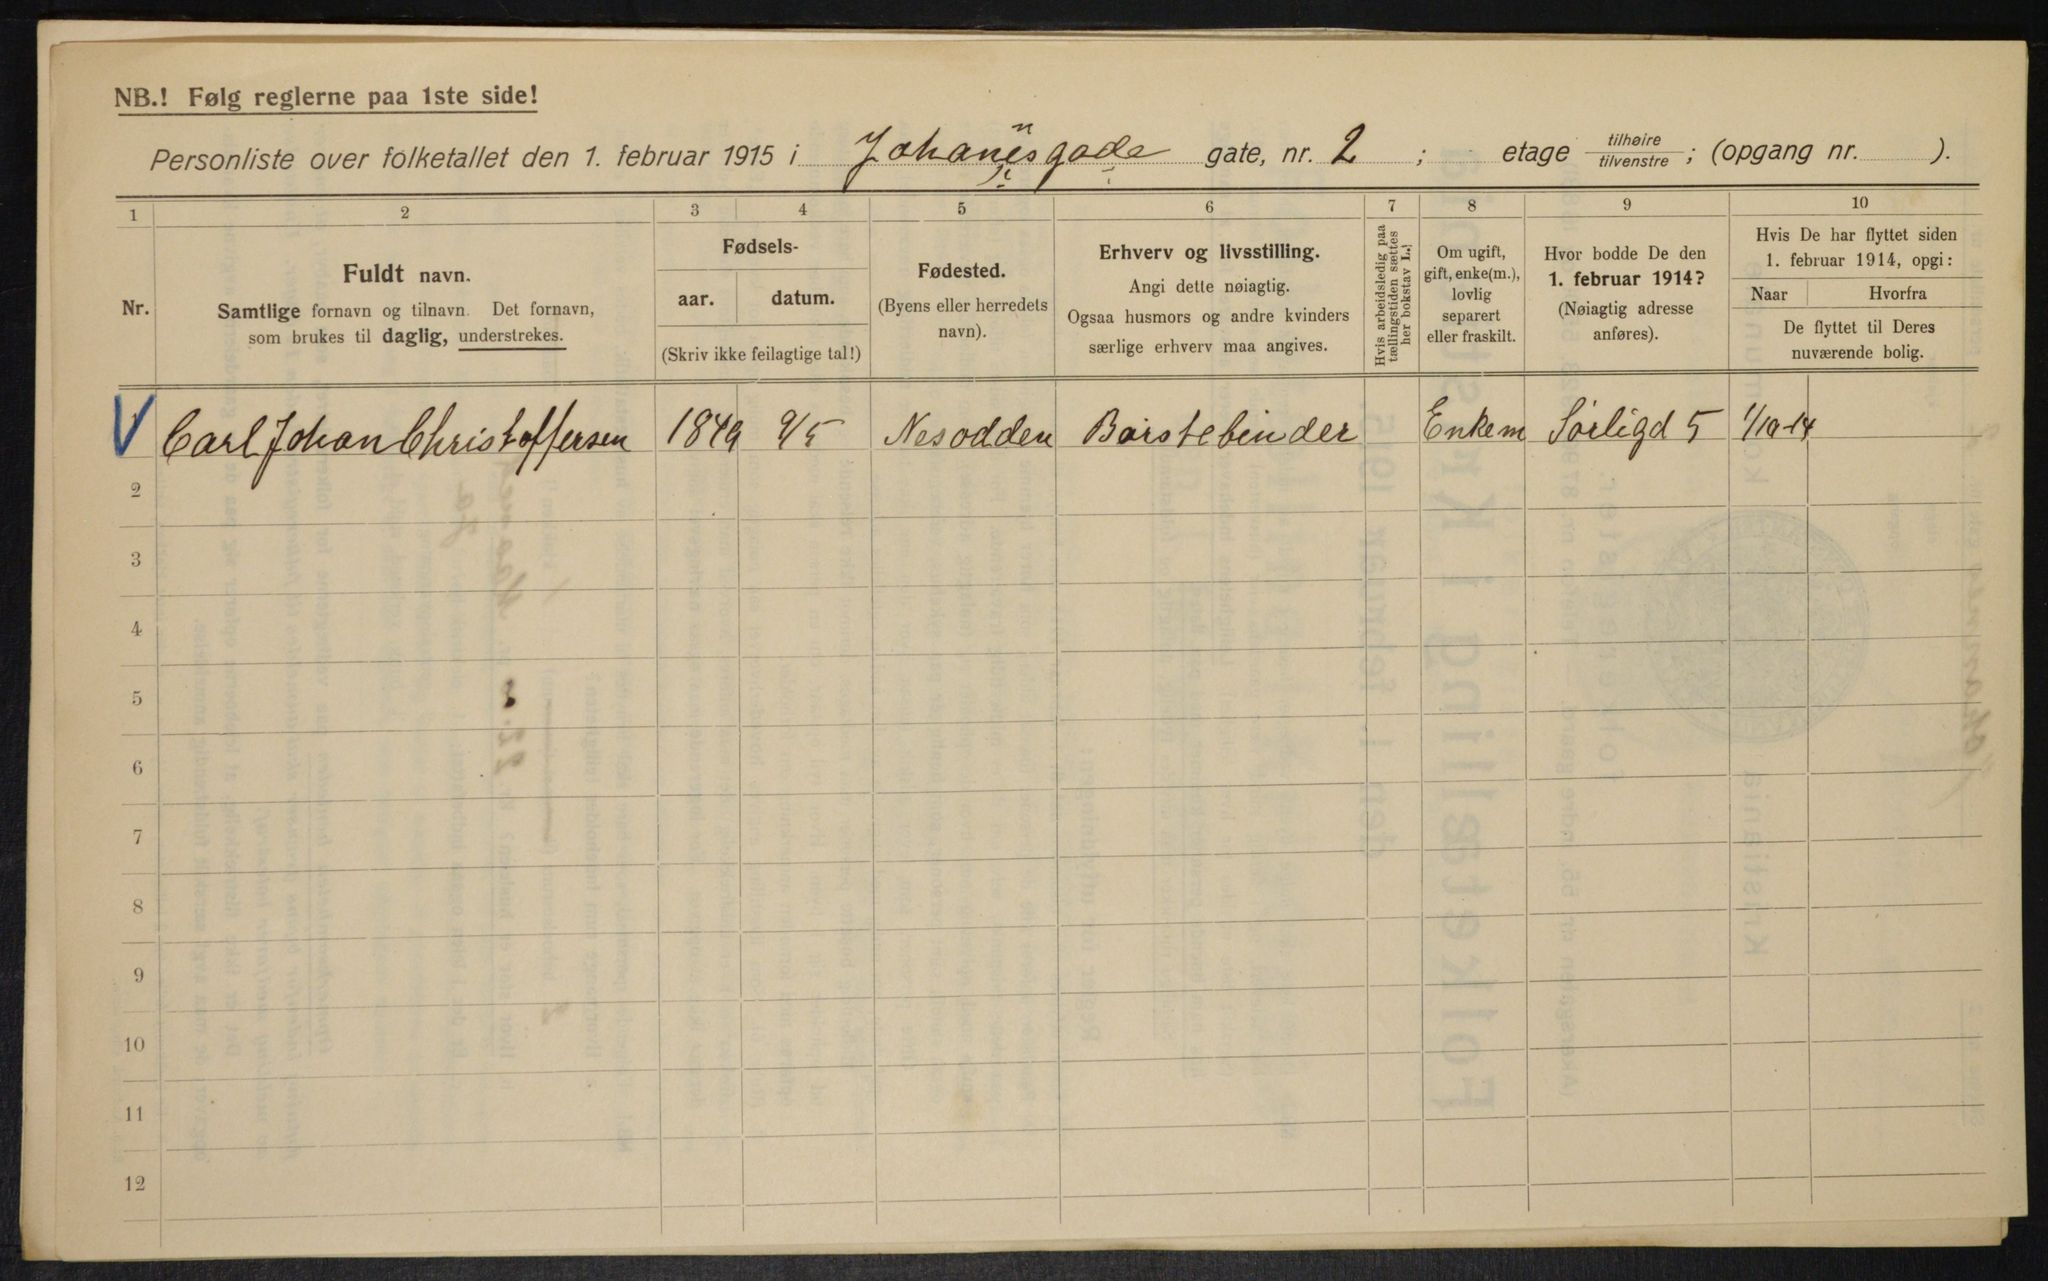 NB.! Følg reglerne paa 1ste side!
Personliste over folketallet den 1. februar 1915 i Johannesgade gate, nr. 2 ; etage tilhøire / tilvenstre ; (opgang nr. ).
1 2 3 4 5 6 7 8 9 10
Nr.
Fuldt navn.
Samtlige fornavn og tilnavn. Det fornavn,
som brukes til daglig, understrekes.
Fødsels-
aar. datum.
(Skriv ikke feilagtige tal!)
Fødested.
(Byens eller herredets
navn).
Erhverv og livsstilling.
Angi dette nøiagtig.
Ogsaa husmors og andre kvinders
særlige erhverv maa angives.
Hvis arbeidsledig paa
tællingstiden sættes
her bokstav L.!
Om ugift,
gift, enke(m.),
lovlig
separert
eller fraskilt.
Hvor bodde De den
1. februar 1914?
(Nøiagtig adresse
anføres).
Hvis De har flyttet siden
1. februar 1914, opgi:
Naar Hvorfra
De flyttet til Deres
nuværende bolig.
Carl Johan Christoffersen 1849 9/5 Nesodden Børstebinder Enkem Sørligd 5 1/10-14
2
3
4
5
6
7
8
9
10
11
12